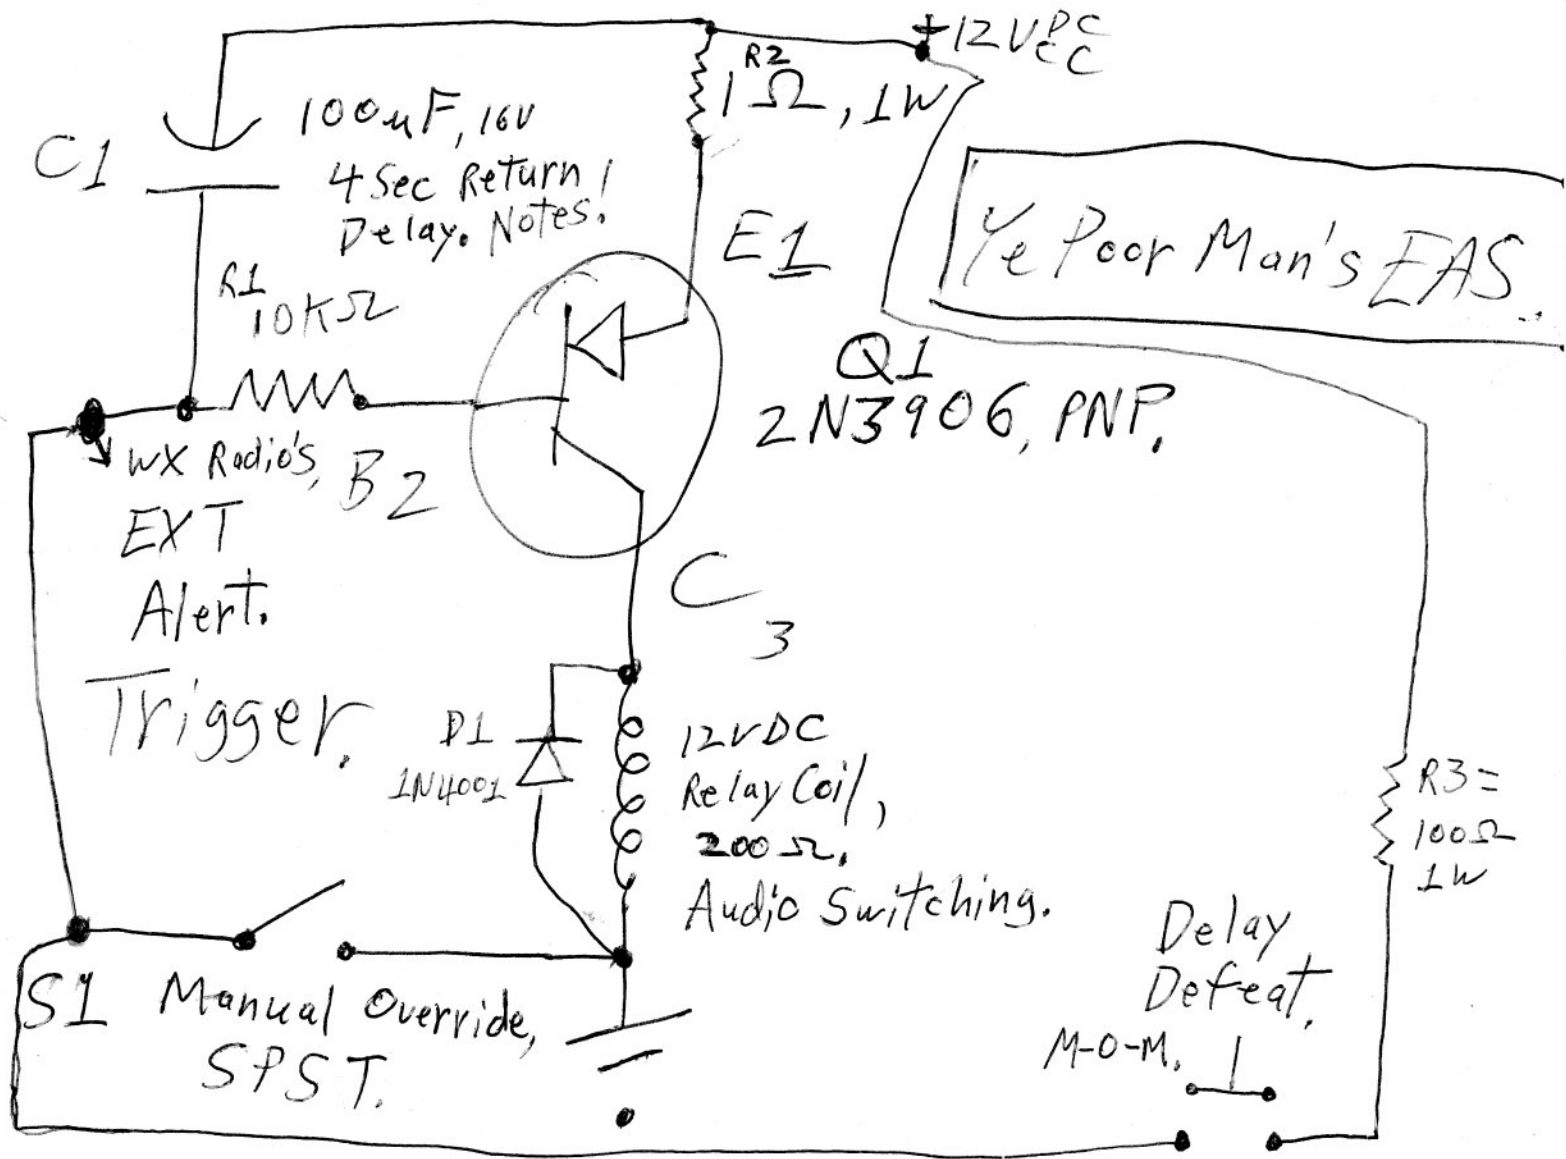 +12VDC
CC
R2
1Ω, 1W
C1
100uF, 16V
4 Sec Return
Delay. Notes!
E1
Ye Poor Man's EAS..
R1
10KΩ
Q1
2N3906, PNP.
WX Radio's,
EXT
Alert.
Trigger.
B2
C
3
D1
1N4001
12VDC
Relay Coil,
200Ω.
Audio Switching.
R3=
100Ω
1W
S1 Manual Override,
SPST.
Delay
Defeat.
M-O-M.